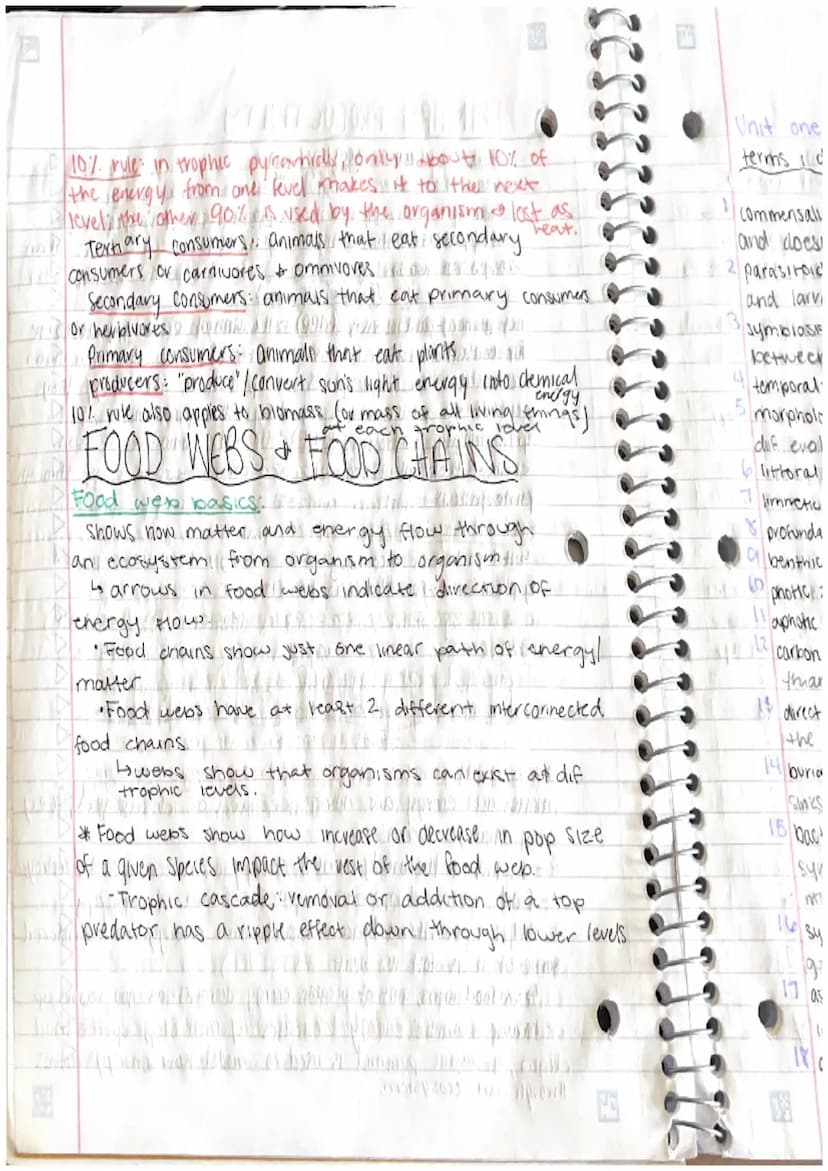 10% rule: in trophic pyramids, only about 10% of
the energy from one level makes it to the next
level; the other 90% is used by the organism & lost as
heat.
Tertiary consumers: animals that eat secondary
consumers or carnivores & omnivores
Secondary consumers: animals that eat primary consumers
or herbivores
Primary consumers: animals that eat plants
producers: "produce"/convert sun's light energy into chemical
energy
10% rule also apples to biomass (or mass of all living things)
at each trophic level
FOOD WEBS & FOOD CHAINS
Food web basics:
shows how matter and energy flow through
an ecosystem, from organism to organism
↳ arrows in food webs indicate direction of
energy flow.
•Food chains show just one linear path of energy/
matter
•Food webs have at least 2 different interconnected
food chains
↳ webs show that organisms can exist at dif
trophic levels.
* Food webs show how increase or decrease in pop size
of a given species impact the rest of the food web.
-Trophic cascade: removal or addition of a top
predator has a ripple effect down through lower levels
Unit one
terms
1 commensali
and does
2 parasitoid
and larv
3 symbiosis
between
4 temporal
5 morpholo
dif
6 littoral
7 limnetic
8 profunda
9 benthic
10 photic
11 aphotic
12 carbon
than
13 direct
the
14 buria
sinks
15
16 sy
17 as
18